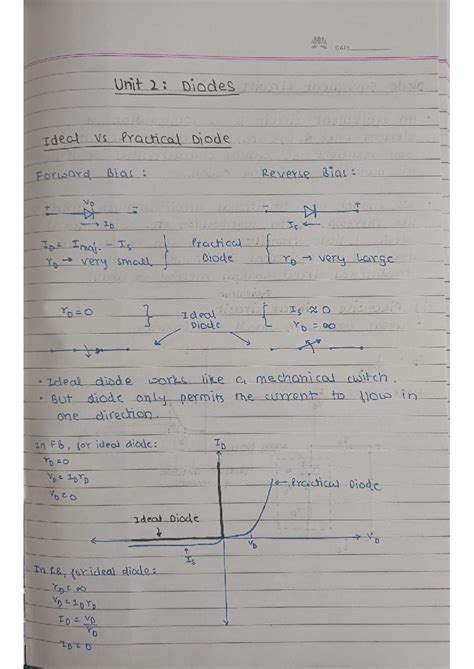 DATE
Unit 2: Diodes
Ideal Vs Practical Diode
Forward Bias: Reverse Bias:
+ VD - - +
→ ID IS ←
ID = Imaj. - IS } Practical
rD → very small } Diode { rD → very Large
rD = 0 } Ideal { IS ≈ 0
Diode rD = ∞
• Ideal diode works like a mechanical switch.
• But diode only permits the current to flow in
one direction.
In FB, for ideal diode: ID
rD = 0
VD = ID rD
VD = 0
← Practical Diode
Ideal Diode
VD
VD
IS
In RB, for ideal diode:
rD = ∞
VD = ID rD
ID = VD / rD
ID = 0